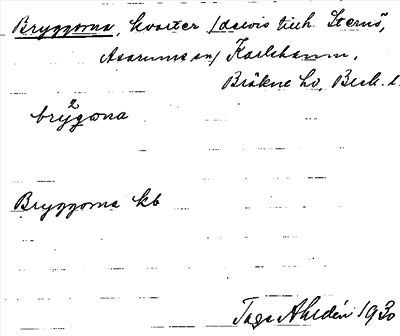 Bryggorna, kvarter (delvis tillh. Sternö,
Asarums sn) Karlshamn,
Bräkne hd, Blek. l.
2
brýgona
Bryggorna kb
Tage Ahldén 1930